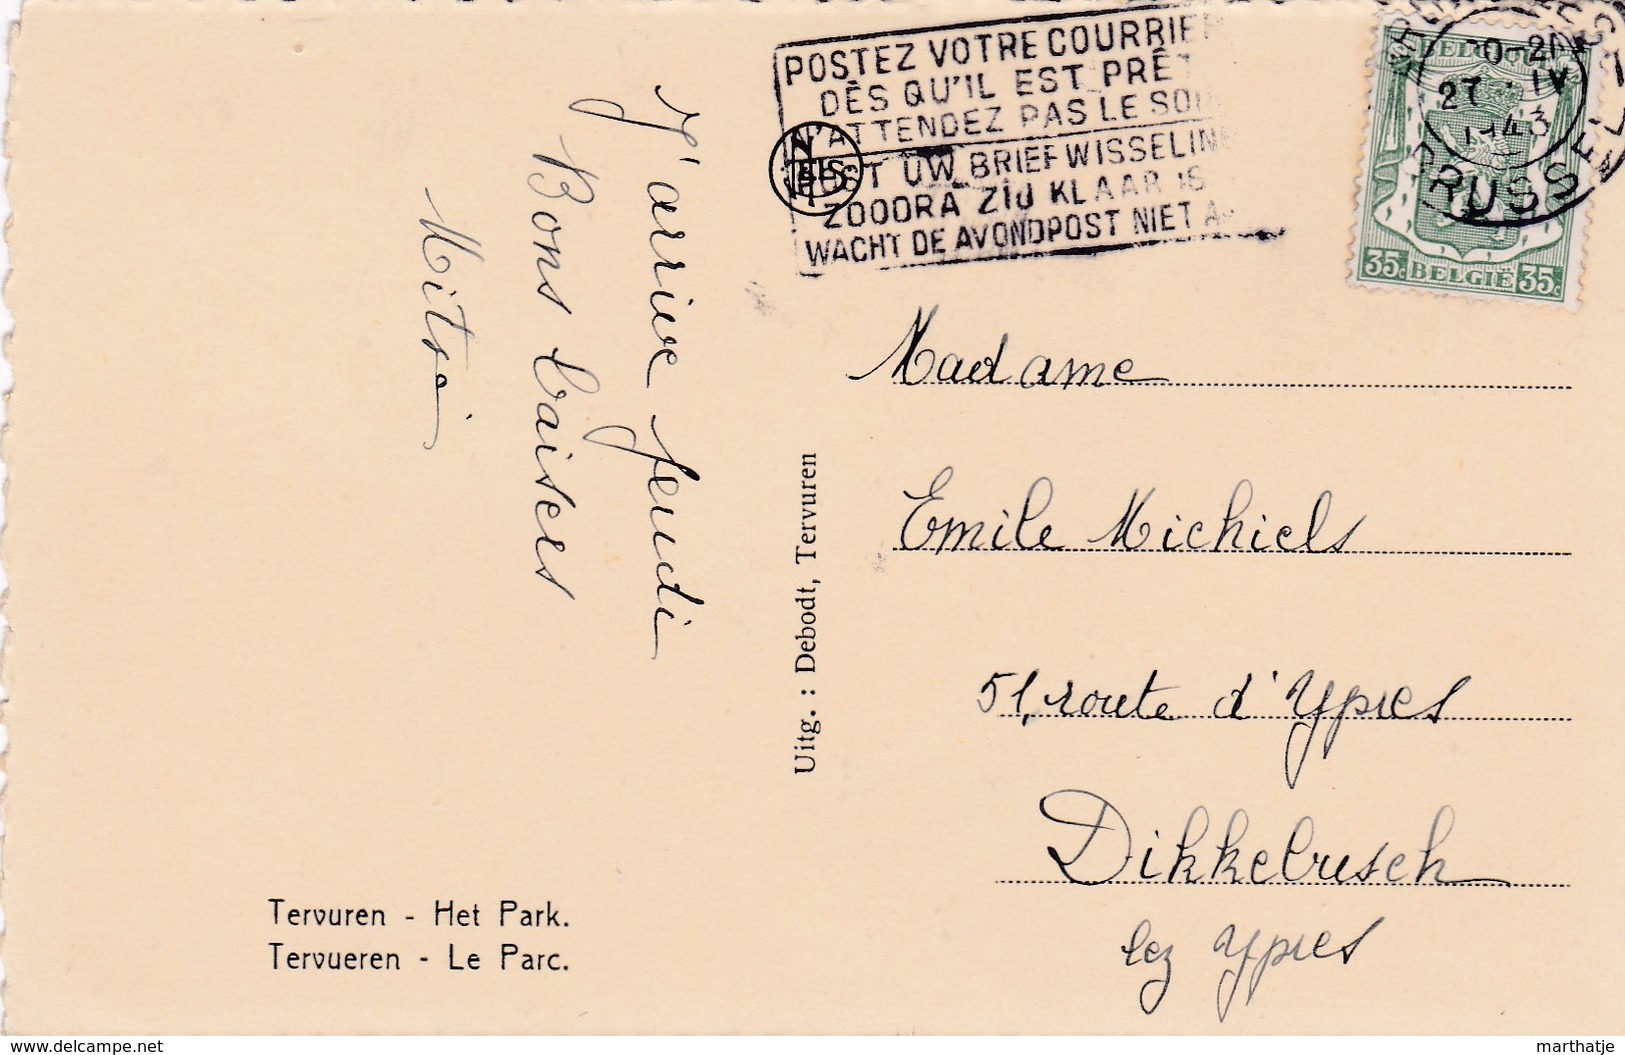 POSTEZ VOTRE COURRIER
DÈS QU'IL EST PRÊT
N'ATTENDEZ PAS LE SOIR
POST UW BRIEFWISSELING
ZOODRA ZIJ KLAAR IS
WACHT DE AVONDPOST NIET
20-21
27 IV
1943
BRUSSEL
35c BELGIË 35c
J'arrive jeudi
Bons baisers
Madame
Emile Michiels
51, route d'Ypres
Dikkebusch
lez Ypres
Uitg. : Debodt, Tervuren
Tervuren - Het Park.
Tervueren - Le Parc.
www.delcampe.net
marthatje